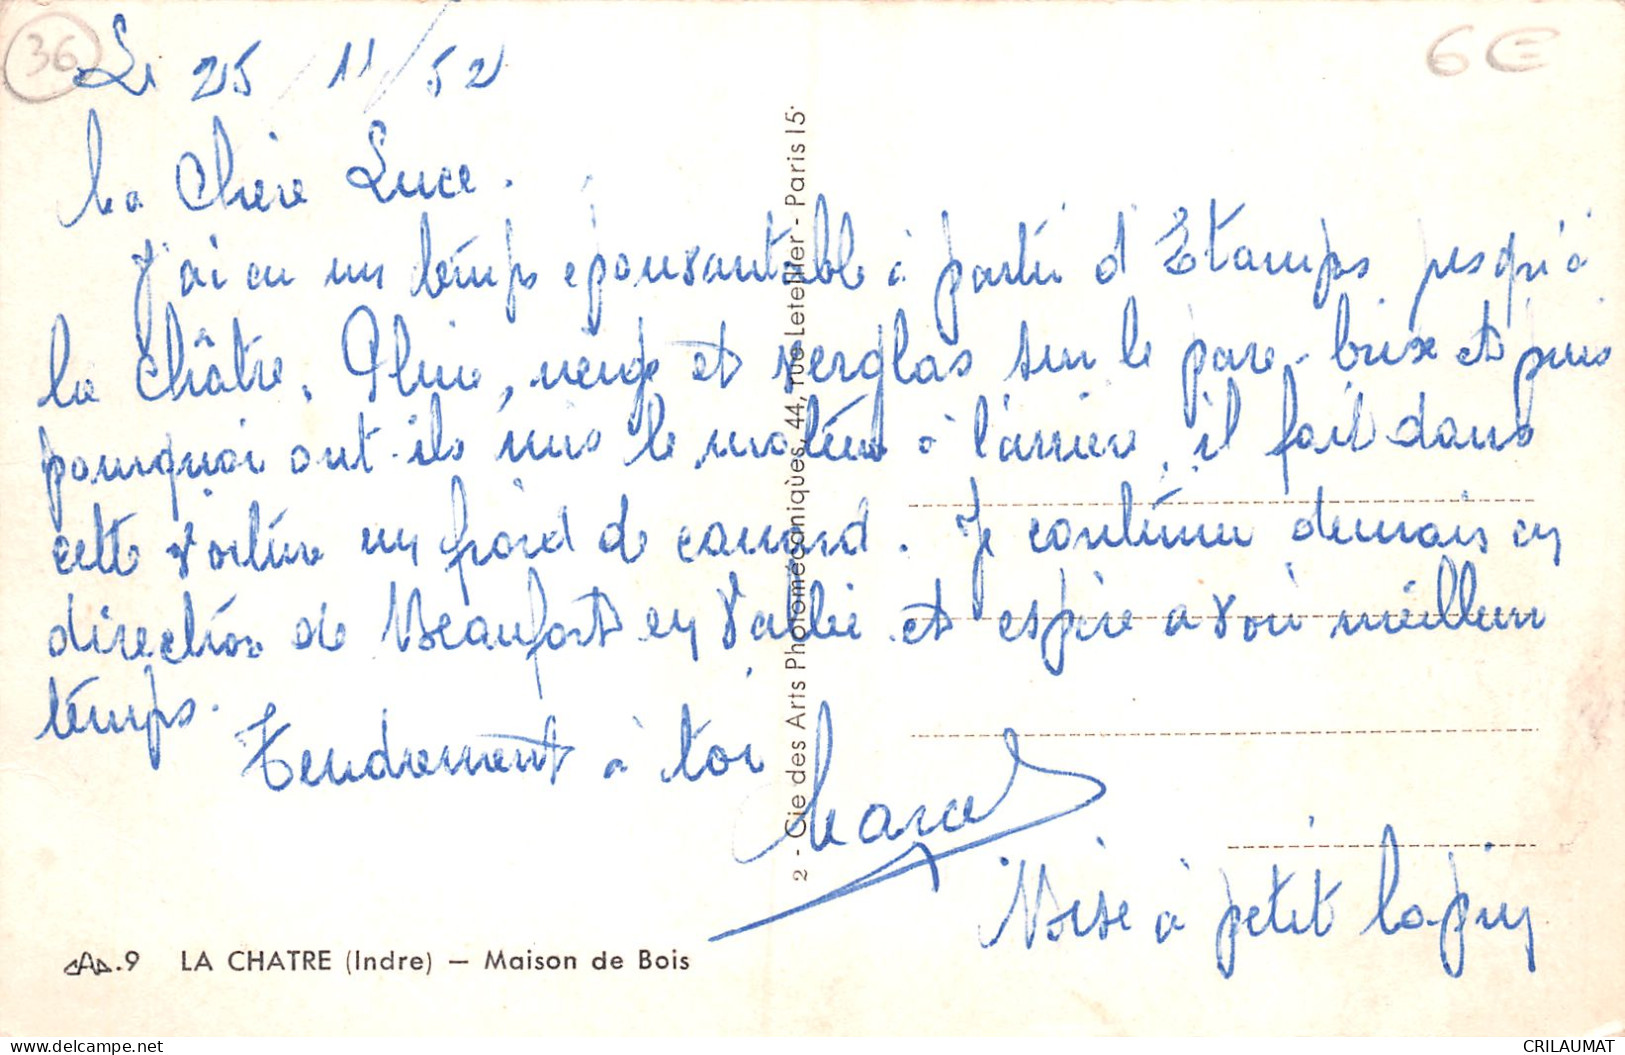 36
Le 25/11/52
6€
Ma Chère Luce.
J'ai eu un temps épouvantable à partir d'Etamps jusqu'à
la Châtre. Pluie, neige et verglas sur le pare-brise et puis
pourquoi ont-ils mis le moteur à l'arrière, il fait dans
cette voiture un froid de canard. Je continue demain en
direction de Beaufort en Vallée et espère avoir meilleur
temps.
Tendrement à toi
Marcel
Bise à petit lapin
2 - Cie des Arts Photomécaniques, 44, rue Letellier - Paris 15.
.9 LA CHATRE (Indre) — Maison de Bois
CRILAUMAT